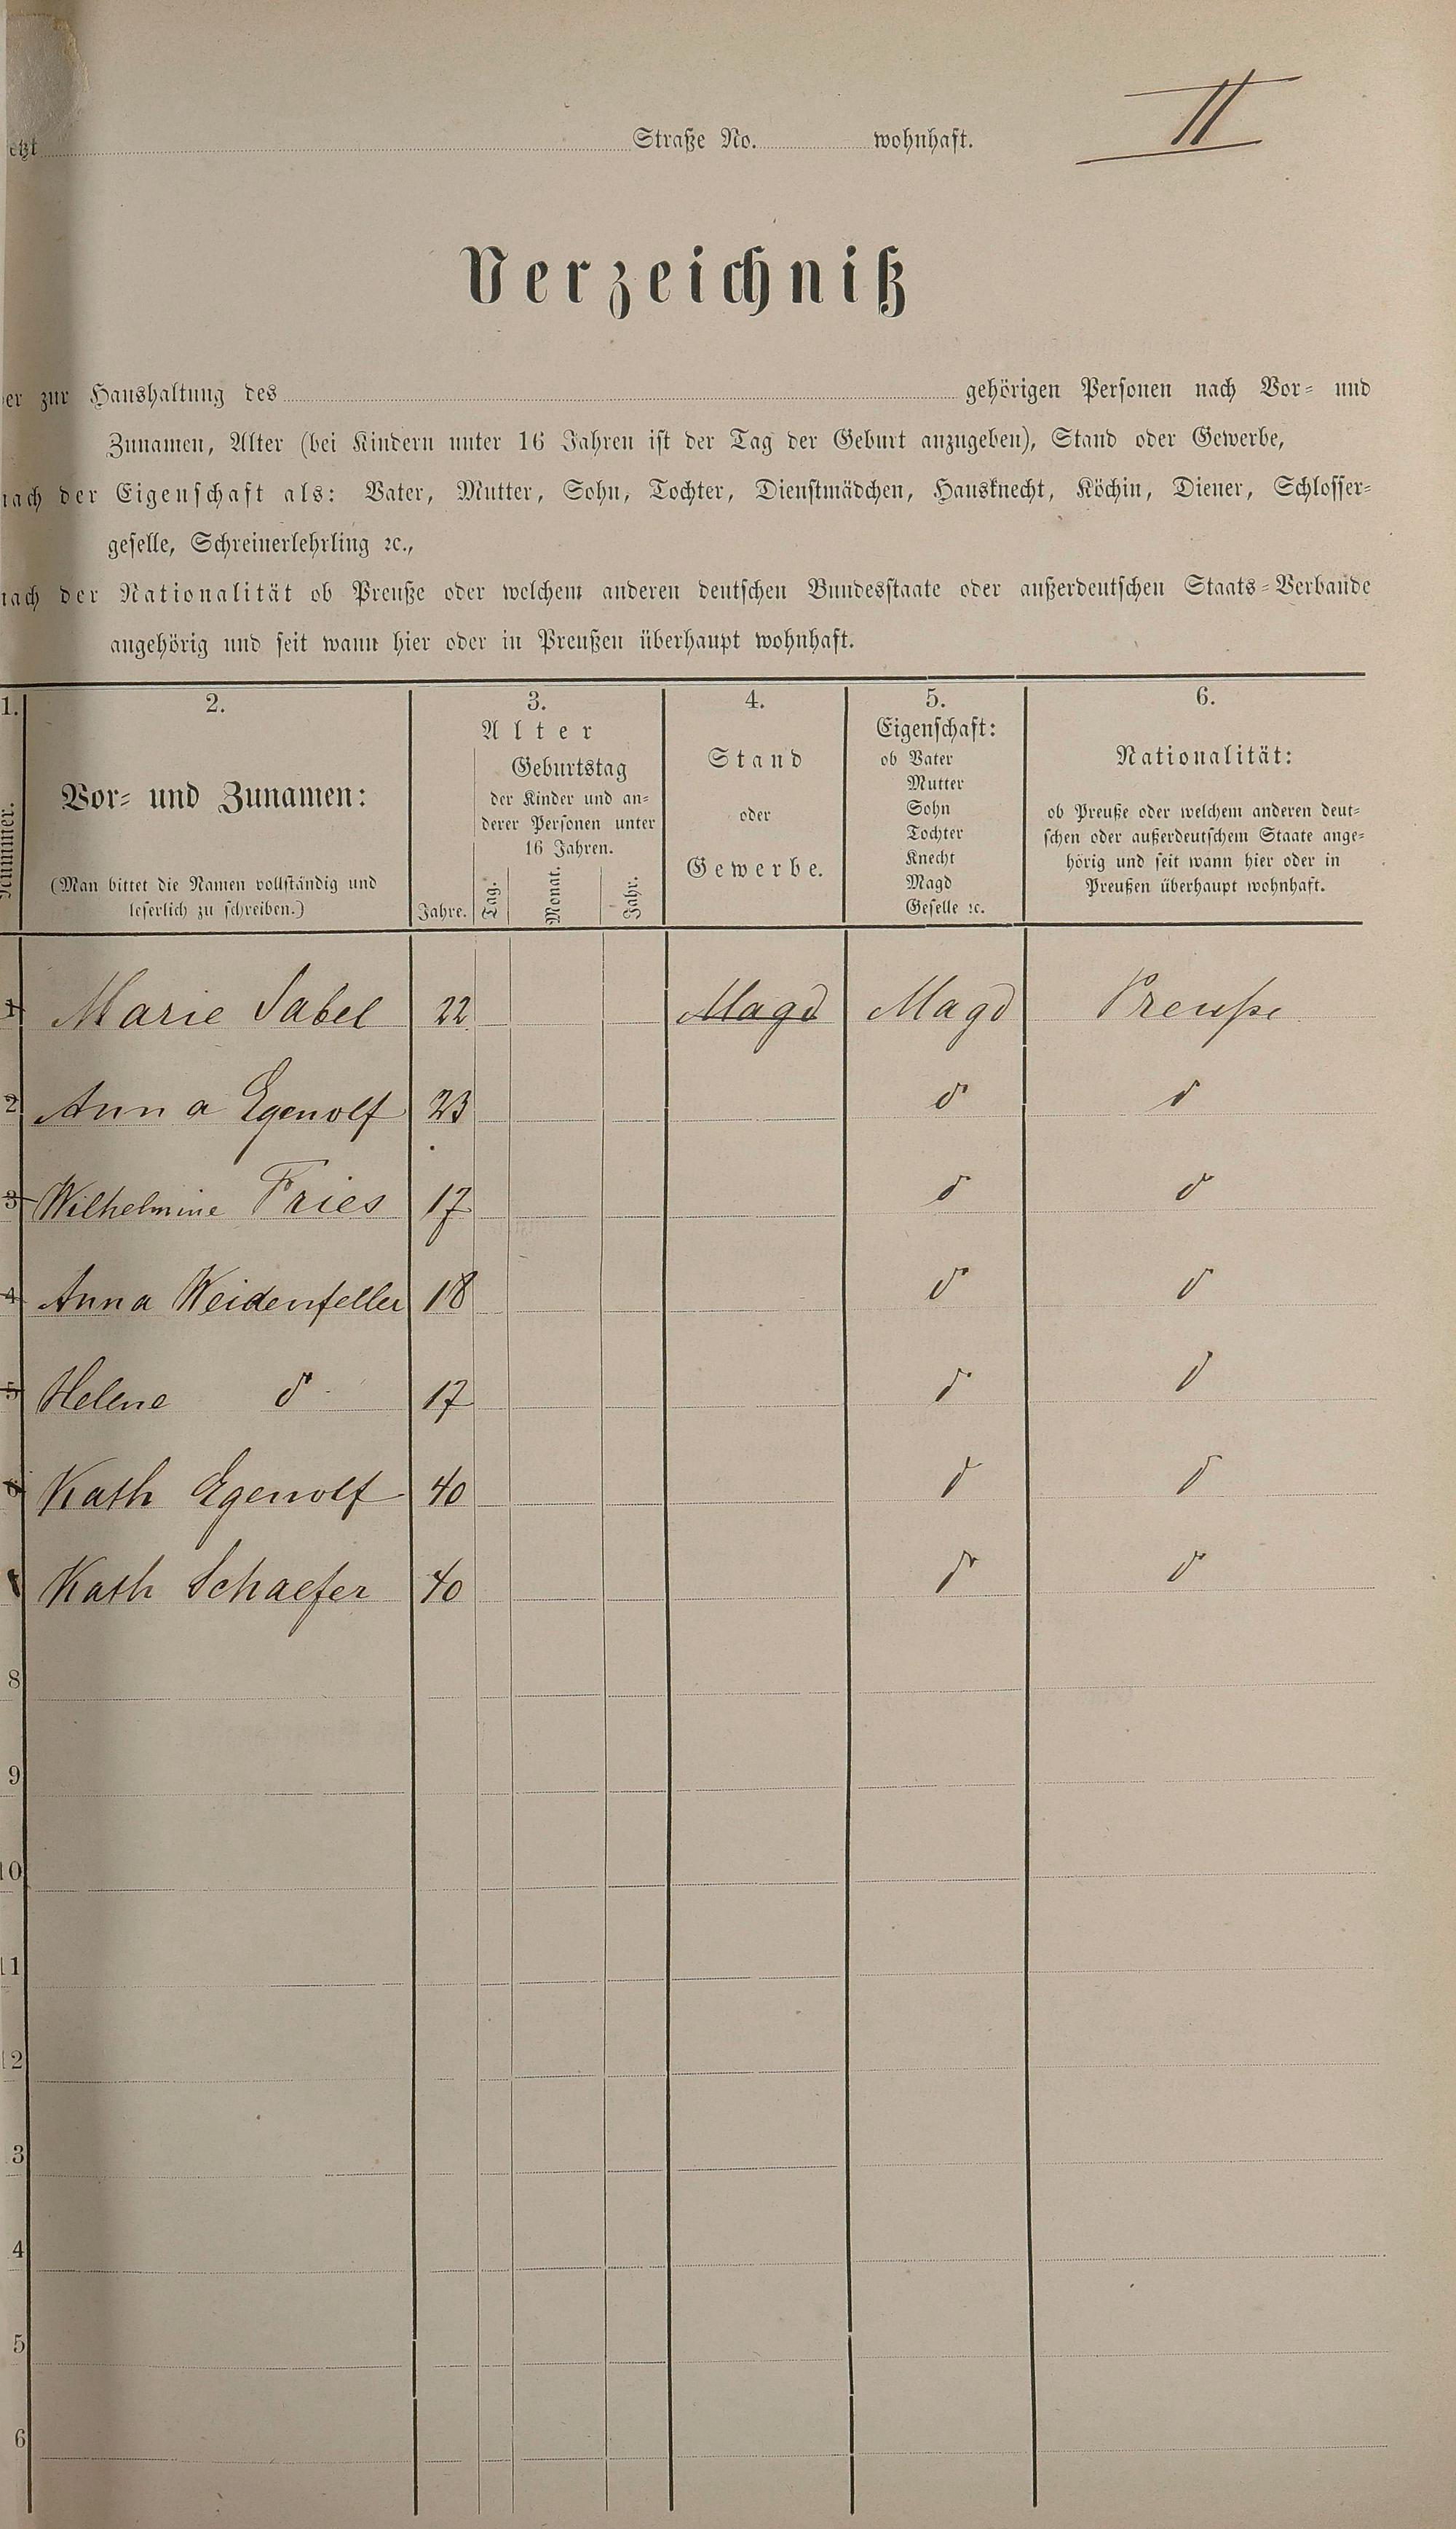 II
etzt Straße No. wohnhaft.
Verzeichniß
er zur Haushaltung des gehörigen Personen nach Vor- und
Zunamen, Alter (bei Kindern unter 16 Jahren ist der Tag der Geburt anzugeben), Stand oder Gewerbe,
nach der Eigenschaft als: Vater, Mutter, Sohn, Tochter, Dienstmädchen, Hausknecht, Köchin, Diener, Schlosser-
geselle, Schreinerlehrling ꝛc.,
nach der Nationalität ob Preuße oder welchem anderen deutschen Bundesstaate oder außerdeutschen Staats-Verbande
angehörig und seit wann hier oder in Preußen überhaupt wohnhaft.
1. 2. 3. 4. 5. 6.
Nummer.
Vor- und Zunamen:
(Man bittet die Namen vollständig und
leserlich zu schreiben.)
Alter
Geburtstag
der Kinder und an-
derer Personen unter
16 Jahren.
Jahre. Tag. Monat. Jahr.
Stand
oder
Gewerbe.
Eigenschaft:
ob Vater
Mutter
Sohn
Tochter
Knecht
Magd
Geselle ꝛc.
Nationalität:
ob Preuße oder welchem anderen deut-
schen oder außerdeutschem Staate ange-
hörig und seit wann hier oder in
Preußen überhaupt wohnhaft.
1 Marie Sabel 22 Magd Magd Preuße
2 Anna Egenolf 23 d d
3 Wilhelmine Fries 17 d d
4 Anna Weidenfeller 18 d d
5 Helene d 17 d d
6 Kath Egenolf 40 d d
Kath Schaefer 40 d d
8
9
10
11
12
3
4
5
6